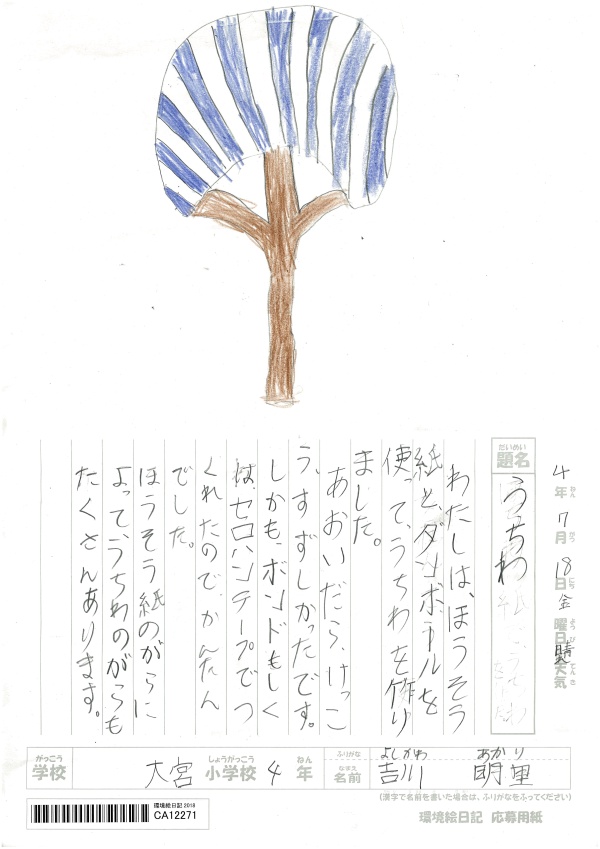 4年7月18日金曜日天気晴
題名 うちわ
わたしは、ほうそう
紙とダンボールを
使って、うちわを作り
ました。
あおいだら、けっこ
う、すずしかったです。
しかも、ボンドもしく
は、セロハンテープでつ
くれたので、かんたん
でした。
ほうそう紙のがらに
よって、うちわのがらも
たくさんあります。
がっこう しょうがっこう ねん ふりがな よしかわ あかり
学校 大宮 小学校 4 年 なまえ 名前 吉川 明里
(漢字で名前を書いた場合は、ふりがなをふってください)
環境絵日記 2018
CA12271
環境絵日記 応募用紙